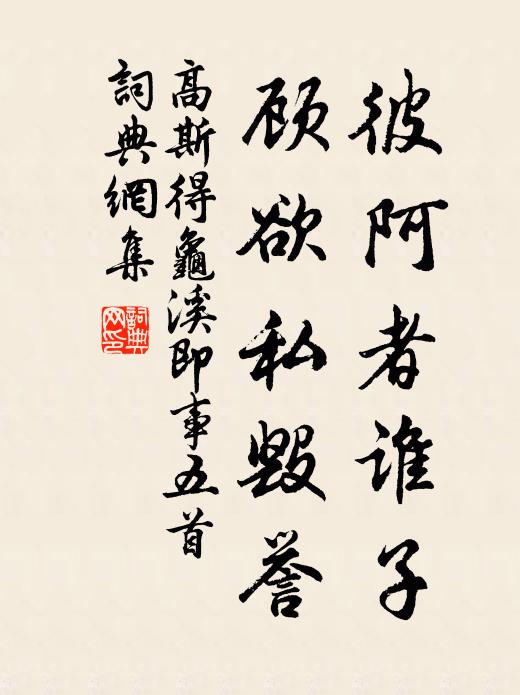 彼阿者谁子
顾欲私毁誉
高斯得龜溪即事五首
詞典網集
詞典
网印